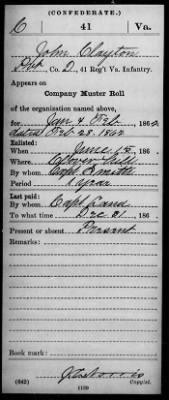 (CONFEDERATE.)
C 41 Va.
John Clayton
Pvt, Co. D, 41 Reg't Va. Infantry.
Appears on
Company Muster Roll
of the organization named above,
for Jan & Feb, 186 2.
dated Feb 28, 1862
Enlisted:
When June 1, 186
Where Clover Hill
By whom Capt.
Period 1 year
Last paid:
By whom Capt. Land
To what time Dec 31, 186
Present or absent Present
Remarks:
Book mark:
(642)
Copyist.